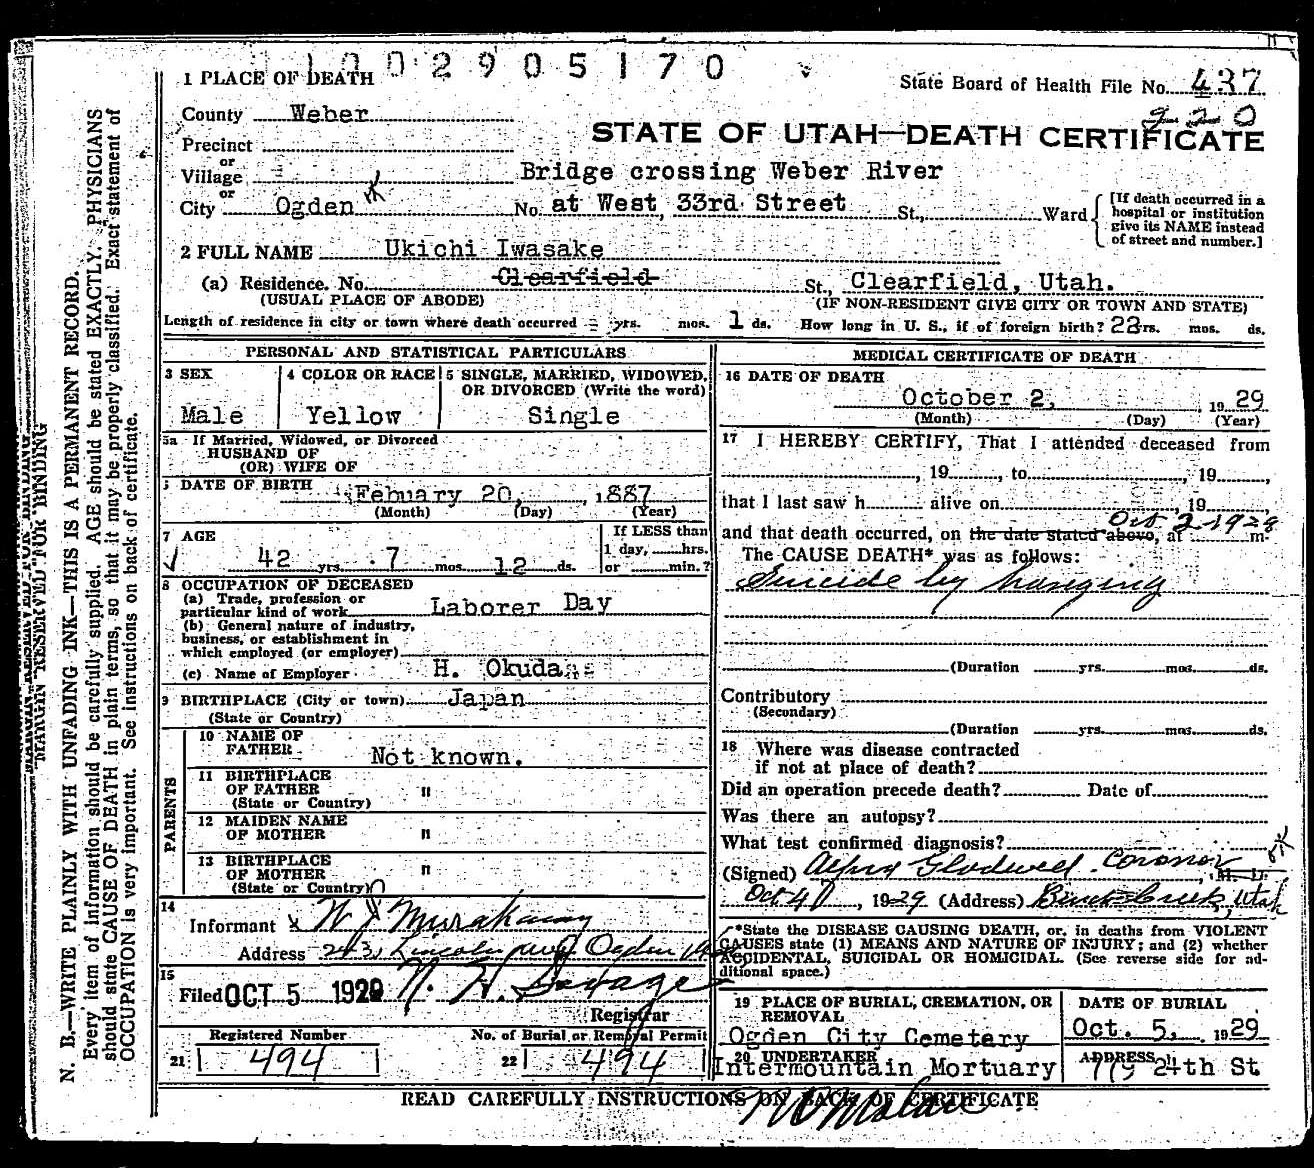 1002905170
1 PLACE OF DEATH
State Board of Health File No. 437
220
County Weber
STATE OF UTAH—DEATH CERTIFICATE
Precinct
or
Village
Bridge crossing Weber River
or
City Ogden No. at West 33rd Street St., Ward
[If death occurred in a hospital or institution give its NAME instead of street and number.]
2 FULL NAME Ukichi Iwasake
(a) Residence. No. Clearfield St., Clearfield, Utah.
(USUAL PLACE OF ABODE) (IF NON-RESIDENT GIVE CITY OR TOWN AND STATE)
Length of residence in city or town where death occurred - yrs. mos. 1 ds. How long in U. S., if of foreign birth? 23rs. mos. ds.
PERSONAL AND STATISTICAL PARTICULARS
3 SEX
Male
4 COLOR OR RACE
Yellow
5 SINGLE, MARRIED, WIDOWED,
OR DIVORCED (Write the word)
Single
5a If Married, Widowed, or Divorced
HUSBAND OF
(OR) WIFE OF
DATE OF BIRTH Febuary 20, , 1887
(Month) (Day) (Year)
7 AGE
42 yrs. 7 mos. 12 ds.
If LESS than
1 day, hrs.
or min.?
8 OCCUPATION OF DECEASED
(a) Trade, profession or
particular kind of work Laborer Day
(b) General nature of industry,
business, or establishment in
which employed (or employer)
(c) Name of Employer H. Okuda
9 BIRTHPLACE (City or town) Japan
(State or Country)
PARENTS
10 NAME OF
FATHER Not known.
11 BIRTHPLACE
OF FATHER "
(State or Country)
12 MAIDEN NAME
OF MOTHER "
13 BIRTHPLACE
OF MOTHER "
(State or Country)
14
Informant
Address Lincoln Ogden
15
Filed OCT 5 1929
Registrar
Registered Number
21 494
No. of Burial or Removal Permit
22 494
MEDICAL CERTIFICATE OF DEATH
16 DATE OF DEATH
October 2, , 1929
(Month) (Day) (Year)
17 I HEREBY CERTIFY, That I attended deceased from
, 19 , to , 19 ,
that I last saw h alive on , 19
Oct 2 1929
and that death occurred, on the date stated above, at m.
The CAUSE DEATH* was as follows:
Suicide by hanging
(Duration yrs. mos. ds.
Contributory
(Secondary)
(Duration yrs. mos. ds.
18 Where was disease contracted
if not at place of death?
Did an operation precede death? Date of
Was there an autopsy?
What test confirmed diagnosis?
(Signed) Coroner, M. D.
Oct 4, 1929 (Address) Utah
*State the DISEASE CAUSING DEATH, or, in deaths from VIOLENT
CAUSES state (1) MEANS AND NATURE OF INJURY; and (2) whether
ACCIDENTAL, SUICIDAL OR HOMICIDAL. (See reverse side for ad-
ditional space.)
19 PLACE OF BURIAL, CREMATION, OR
REMOVAL
Ogden City Cemetery
DATE OF BURIAL
Oct. 5, 1929
20 UNDERTAKER
Intermountain Mortuary
ADDRESS
24th St
READ CAREFULLY INSTRUCTIONS ON BACK OF CERTIFICATE
MARGIN RESERVED FOR BINDING
N. B.—WRITE PLAINLY WITH UNFADING INK—THIS IS A PERMANENT RECORD.
Every item of information should be carefully supplied. AGE should be stated EXACTLY. PHYSICIANS
should state CAUSE OF DEATH in plain terms, so that it may be properly classified. Exact statement of
OCCUPATION is very important. See instructions on back of certificate.